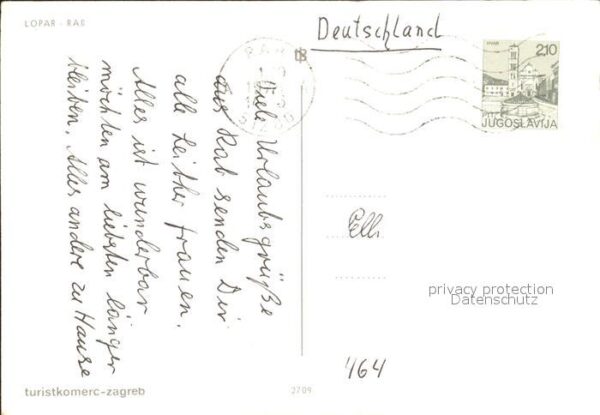 LOPAR - RAB
Deutschland
HVAR
2.10
JUGOSLAVIJA
Viele Urlaubsgrüße
aus Rab senden Dir
alle Leither Frauen.
Alles ist wunderbar
möchten am liebsten länger
bleiben. Alles andere zu Hause
Elli
privacy protection
Datenschutz
464
turistkomerc-zagreb
2709